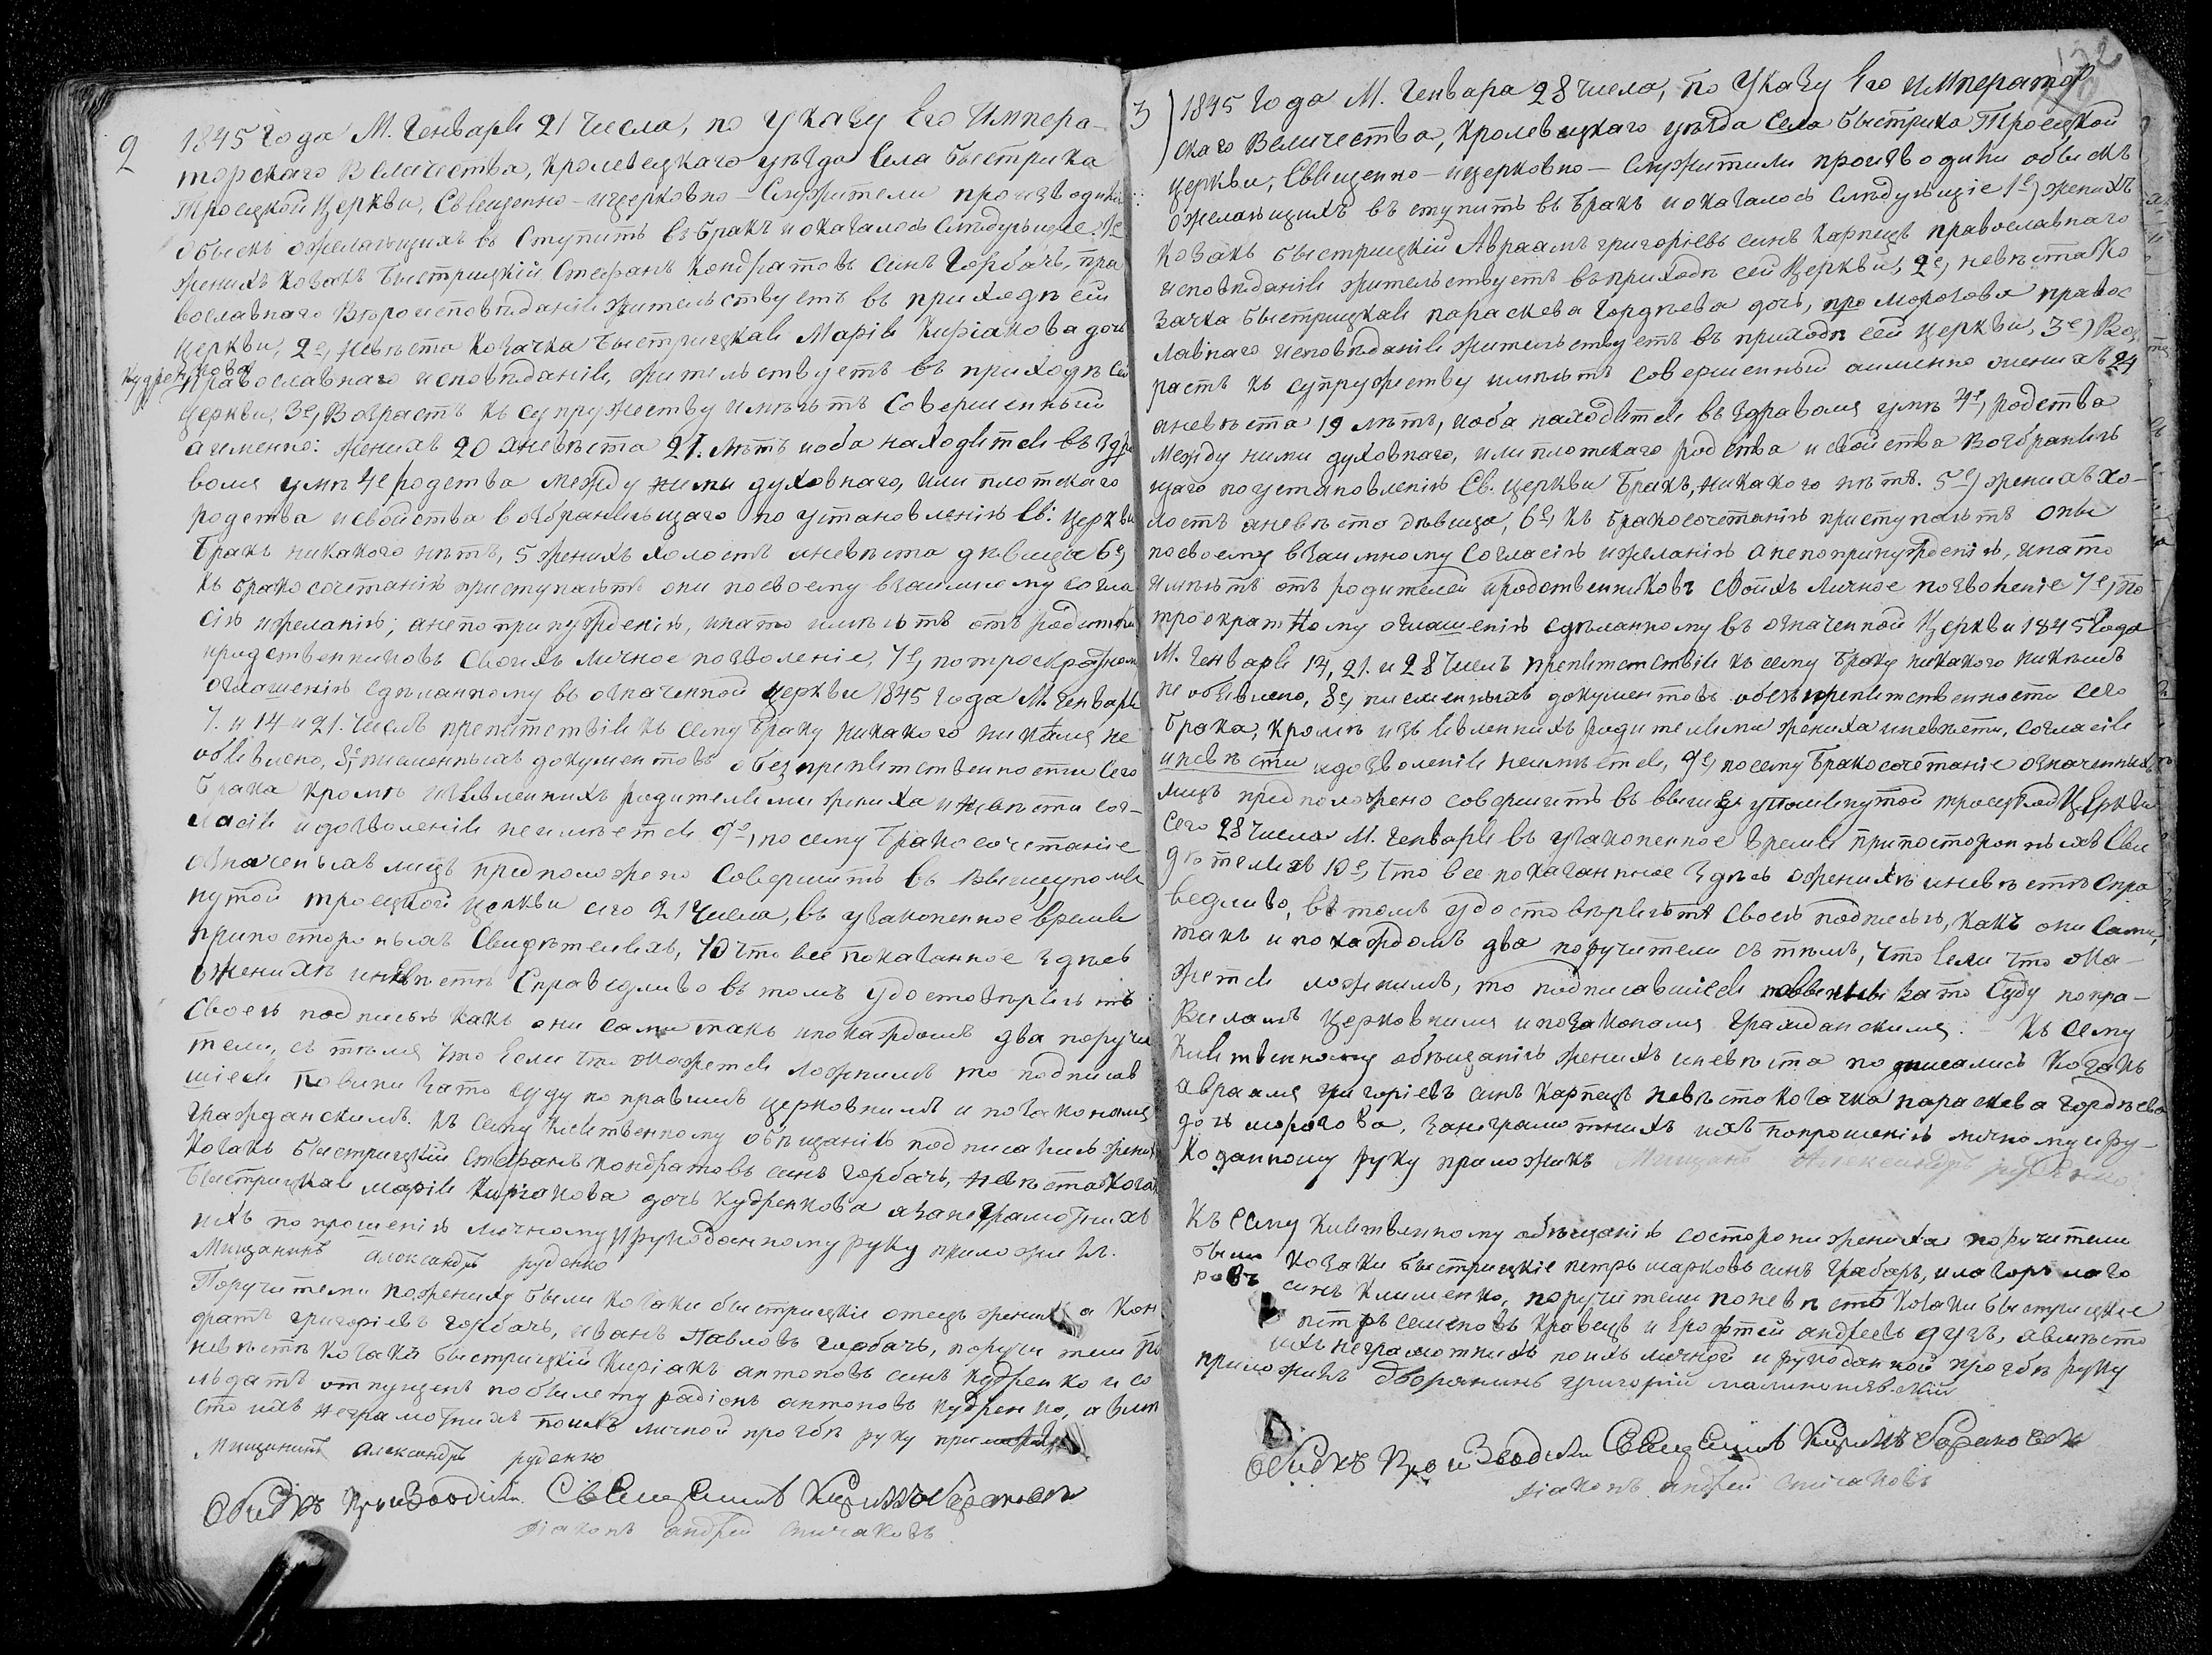 2
1845 Года М. Генваря 21 числа, по Указу Его Импера-
торскаго Величества, Кролевецкаго уѣзда Села Быстрика
Троецкой Церкви, Священно-ицерковно-Служители производили
обыскъ ожелающихъ въ Ступить въ бракъ иоказалось Слѣдующее. 1е
женихъ козакъ Быстрицкій Стефанъ Кондратовъ синъ Горбачъ, пра
вославнаго Вѣроисповѣданія жительствуетъ въ приходѣ сей
Церкви, 2е, Невѣста козачка быстрицкая Марія Киріакова дочь
Кудренкова
православнаго исповѣданія, жительствуетъ въ приходѣ сей
церкви, 3е, Возрастъ къ супружеству имѣютъ Совершенный
аименно: женихъ 20 аневѣста 21. лѣтъ иоба находятся въ здра
вомъ умѣ 4е родства между ними духовнаго, или плотскаго
родства исвойства возбраняющаго по установленію Св: церкви
бракъ никакого нѣтъ, 5 женихъ холостъ аневѣста дѣвица 6е,
къ бракосочетанію приступаютъ они посвоему взаимному согла
сію ижеланію; анепопринужденію, инато имѣютъ отъ родителей
иродственниковъ Своихъ личное позволеніе, 7е, потроекратному
оглашенію сдѣланному въ означенной церкви 1845 года М. Генваря
7. и 14 и 21. числъ препятствія къ сему браку никакого никѣмъ не
объявлено, 8е, писменныхъ документовъ обезпрепятственности Сего
брака кромѣ изъявленнихъ родителями жениха иневѣсти сог-
ласія идозволенія неимѣется 9е, посему бракосочетаніе
означеныхъ лицъ предположено Совершить въ Вышеупомя
нутой троецкой церкви сего 21 числа, въ узаконенное время
припосторонныхъ Свидѣтеляхъ, 10 что все показанное здѣсь
оженихѣ иневѣстѣ Справедливо въ томъ удостовѣряютъ
Своею подписью какъ они сами такъ ипокаждомъ два поручи
тели, съ тѣмъ что Если что окажется ложнимъ то подписав
шіеся повини зато суду по правиламъ церковнимъ и позаконамъ
гражданскимъ. Къ сему клятвенному обѣщанію подписались женихъ
козакъ быстрицкій Стефанъ Кондратовъ синъ Горбачъ, невѣста козач
быстрицкая Марія Киріакова дочь Кудренкова азанеграмотнихъ
ихъ попрошенію личному ирукоданному руку приложилъ.
Мищанинъ Александръ руденко
Поручители пожениху были козаки быстрицкіи отецъ жениха Кон
дратъ григоріевъ горбачъ, иванъ Павловъ горбачъ, поручители по
невѣстѣ козаки быстрицкіи Киріакъ антоновъ синъ Кудренко и со
лдатъ отпущенъ побилету радіонъ антоновъ Кудренко, авмѣ
сто ихъ неграмотнихъ поихъ личной прозбѣ руку приложилъ
Мищанинъ Александръ руденко
Обискъ Производили Священникъ Кирилъ
Діаконъ андрей
3
1845 года М. Генвара 28 числа, по Указу Его Император
скаго Величества, Кролевецкаго уѣзда Села Быстрика Троецкой
церкви, Священно-ицерковно-Служители производили обыскъ
ожелающихъ въ ступить въ бракъ иоказалось Слѣдующіе 1е) женихъ
козакъ быстрицкій Авраамъ григоріевъ синъ Карпецъ православнаго
исповѣданія жительствуетъ въприходѣ сей Церкви, 2е, невѣста ко
зачка быстрицкая параскева гордѣева дочь, про Морозова правос
лавнаго исповѣданія жительствуетъ въ приходѣ сей церкви, 3е) Воз
растъ къ супружеству имѣютъ совершенный аименно женихъ 24
аневѣста 19 лѣтъ, иоба находятся въ здравомъ умѣ 4е, родства
между ними духовнаго, или плотскаго родства и свойства Возбраняю
щаго поустановленію Св. церкви Бракъ, никакого нѣтъ. 5е) женихъ хо-
лостъ аневѣсто дѣвица, 6е, къ бракосочетанію приступаютъ оны
посвоему взаимному согласію ижеланію анепопринужденію, инато
имѣютъ отъ родителей иродственниковъ своихъ личное позволеніе 7е, по
троекратному оглашенію сдѣланному въ означенной Церкви 1845 Года
М. Генваря 14, 21. и 28 числъ препятствія къ сему браку никакого никѣмъ
не объявлено, 8е, писменныхъ документовъ обезъпрепятственности сего
брака, кромѣ изъявленнихъ родителями жениха иневѣсти, согласія
иневѣсти идозволенія неимѣется, 9е, посему Бракосочетаніе означенныхъ
лицъ предположено совершить въ вышеупомянутой троецкой Церкви
сего 28 числа М. Генваря въ узаконенное время припостороннъихъ Сви
дѣтеляхъ 10е, что все показанное Здѣсь оженихѣ иневѣстѣ Спра
ведливо, въ томъ удостовѣряютъ своею подписью, какъ они сами,
такъ и покаждомъ два поручители съ тѣмъ, что Если что ока-
жется ложнимъ, то подписавшіеся повинни зато Суду попра-
виламъ церковнимъ и позаконамъ гражданскимъ. Къ сему
Клятвенному обѣщанію женихъ иневѣста подписались Козакъ
авраамъ григоріевъ синъ карпецъ невѣста козачка параскева гордѣева
дочь морозова, занеграмотнихъ ихъ попрошенію личному иру-
коданному руку приложилъ Мищанинъ Александръ руденко
Къ сему клятвенному обѣщанію состорони жениха поручители
были козаки быстрицкіе петръ марковъ синъ Грабаръ,
синъ Клименко, поручители поневѣстѣ козаки быстрицкіе
петръ семеновъ Кравецъ и Ерофтей андреевъ дузъ, авмѣсто
ихъ неграмотнихъ поихъ личной и рукоданной прозбѣ руку
приложилъ Дворянинъ григорій
Обискъ Производили Священникъ Кирилъ
Діаконъ андрей